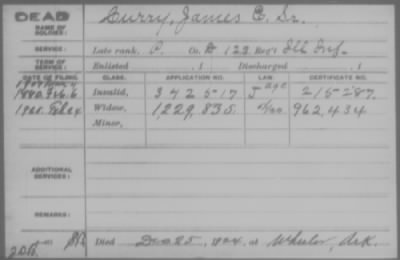 DEAD
NAME OF SOLDIER: Curry, James E. Sr.
SERVICE: Late rank, P. Co. A 123 Reg't Ill Inf.
TERM OF SERVICE: Enlisted , 1 Discharged , 1
DATE OF FILING. CLASS. APPLICATION NO. LAW CERTIFICATE NO.
1880 Feb. 6 Invalid, 342517 215287.
Widow, 1,229,835. 962,434
Minor,
ADDITIONAL SERVICES:
REMARKS:
Died Dec 25, 1924, at Wheeler, Ark.